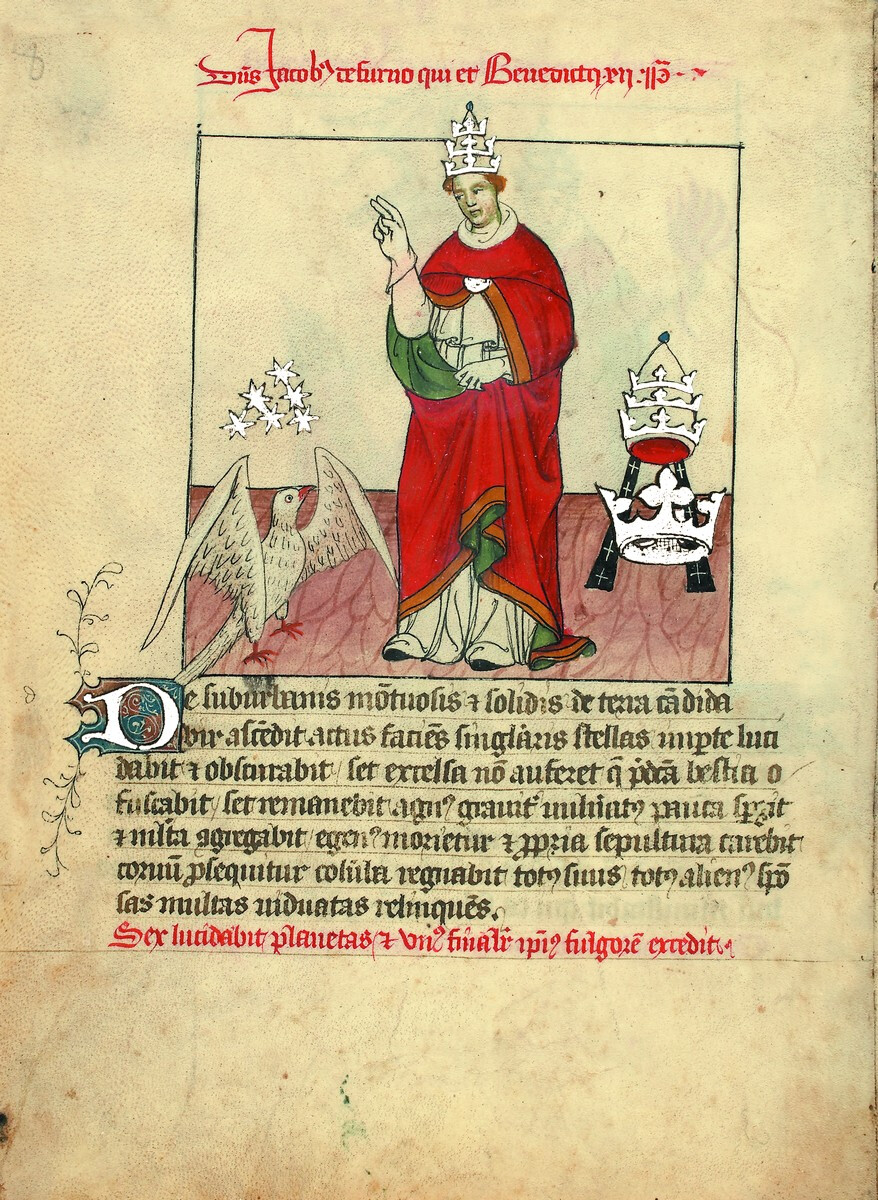 Dn̄s Jacob⁹ de furno qui et Benedict⁹ xii⁹ p̄p̄
De suburbanis mōtuosis ⁊ solidis de terra cādida
vir ascēdit actus faciēs singlaris stellas luci
dabit ⁊ obscurabit / set excelsa nō auferet q̄ p̄dcā bestia o
fuscabit / set remanebit agn⁹ pauca
⁊ mlta ꝯgregabit / egen⁹ morietur ⁊ ꝓpria sepultura carebit
coruū ꝓsequitur colūba regnabit tot⁹ suus tot⁹ alien⁹ spō
sas multas viduatas relinquēs.
Sex lucidabit planetas / ⁊ vn⁹ finalr̄ ip̄i⁹ fulgorē excedit